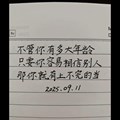 不管你有多大年龄
只要你容易相信别人
那你就有上不完的当
2025.09.11